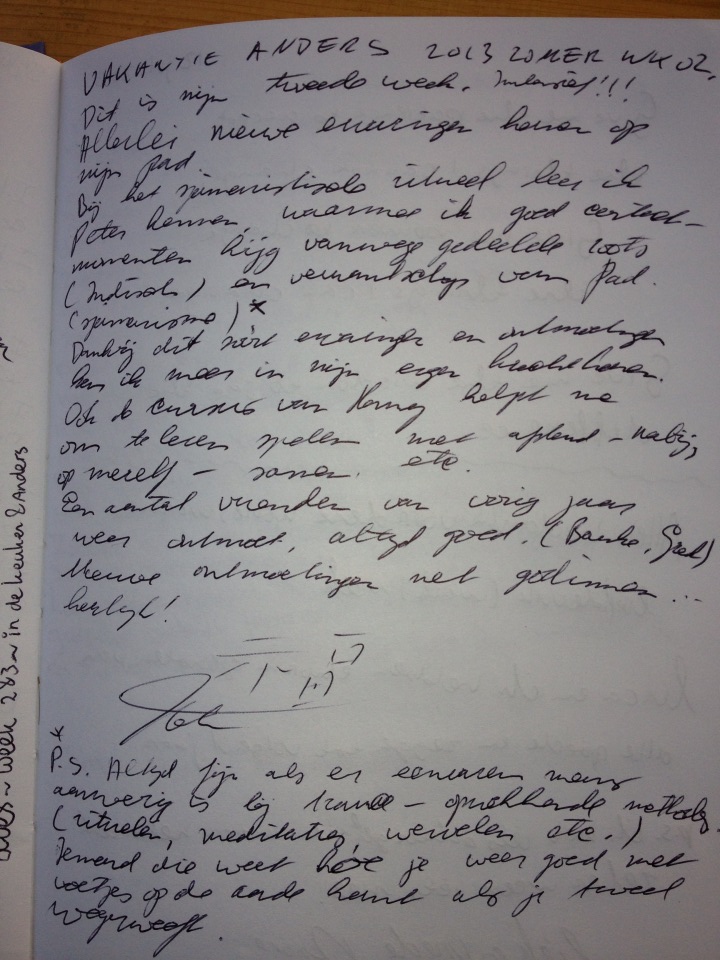 VAKANTIE ANDERS 2013 ZOMER WK 02.
Dit is mijn tweede week. Intensief!!!
Allerlei nieuwe ervaringen komen op
mijn pad.
Bij het sjamanistische ritueel leer ik
Peter kennen, waarmee ik goed contact-
momenten krijg vanwege gedeelde roots
(Indisch) en verwantschap van Pad.
(sjamanisme)*
Dankzij dit soort ervaringen en ontmoetingen
kan ik meer in mijn eigen kracht komen.
Ook de cursus van helpt me
om te leren spelen met afstand - nabij,
op mezelf - samen. etc.
Een aantal vrienden van vorig jaar
weer ontmoet, altijd goed. (
Nieuwe ontmoetingen met godinnen...
heerlijk!
*
P.S. Altijd fijn als er een ervaren mens
aanwezig is bij trance - opwekkende methodes.
(rituelen, meditaties, wervelen etc.)
Iemand die weet hóe je weer goed met
voetjes op de aarde komt als je teveel
wegzweeft.
week 283 ~ in de keuken 2 Anders